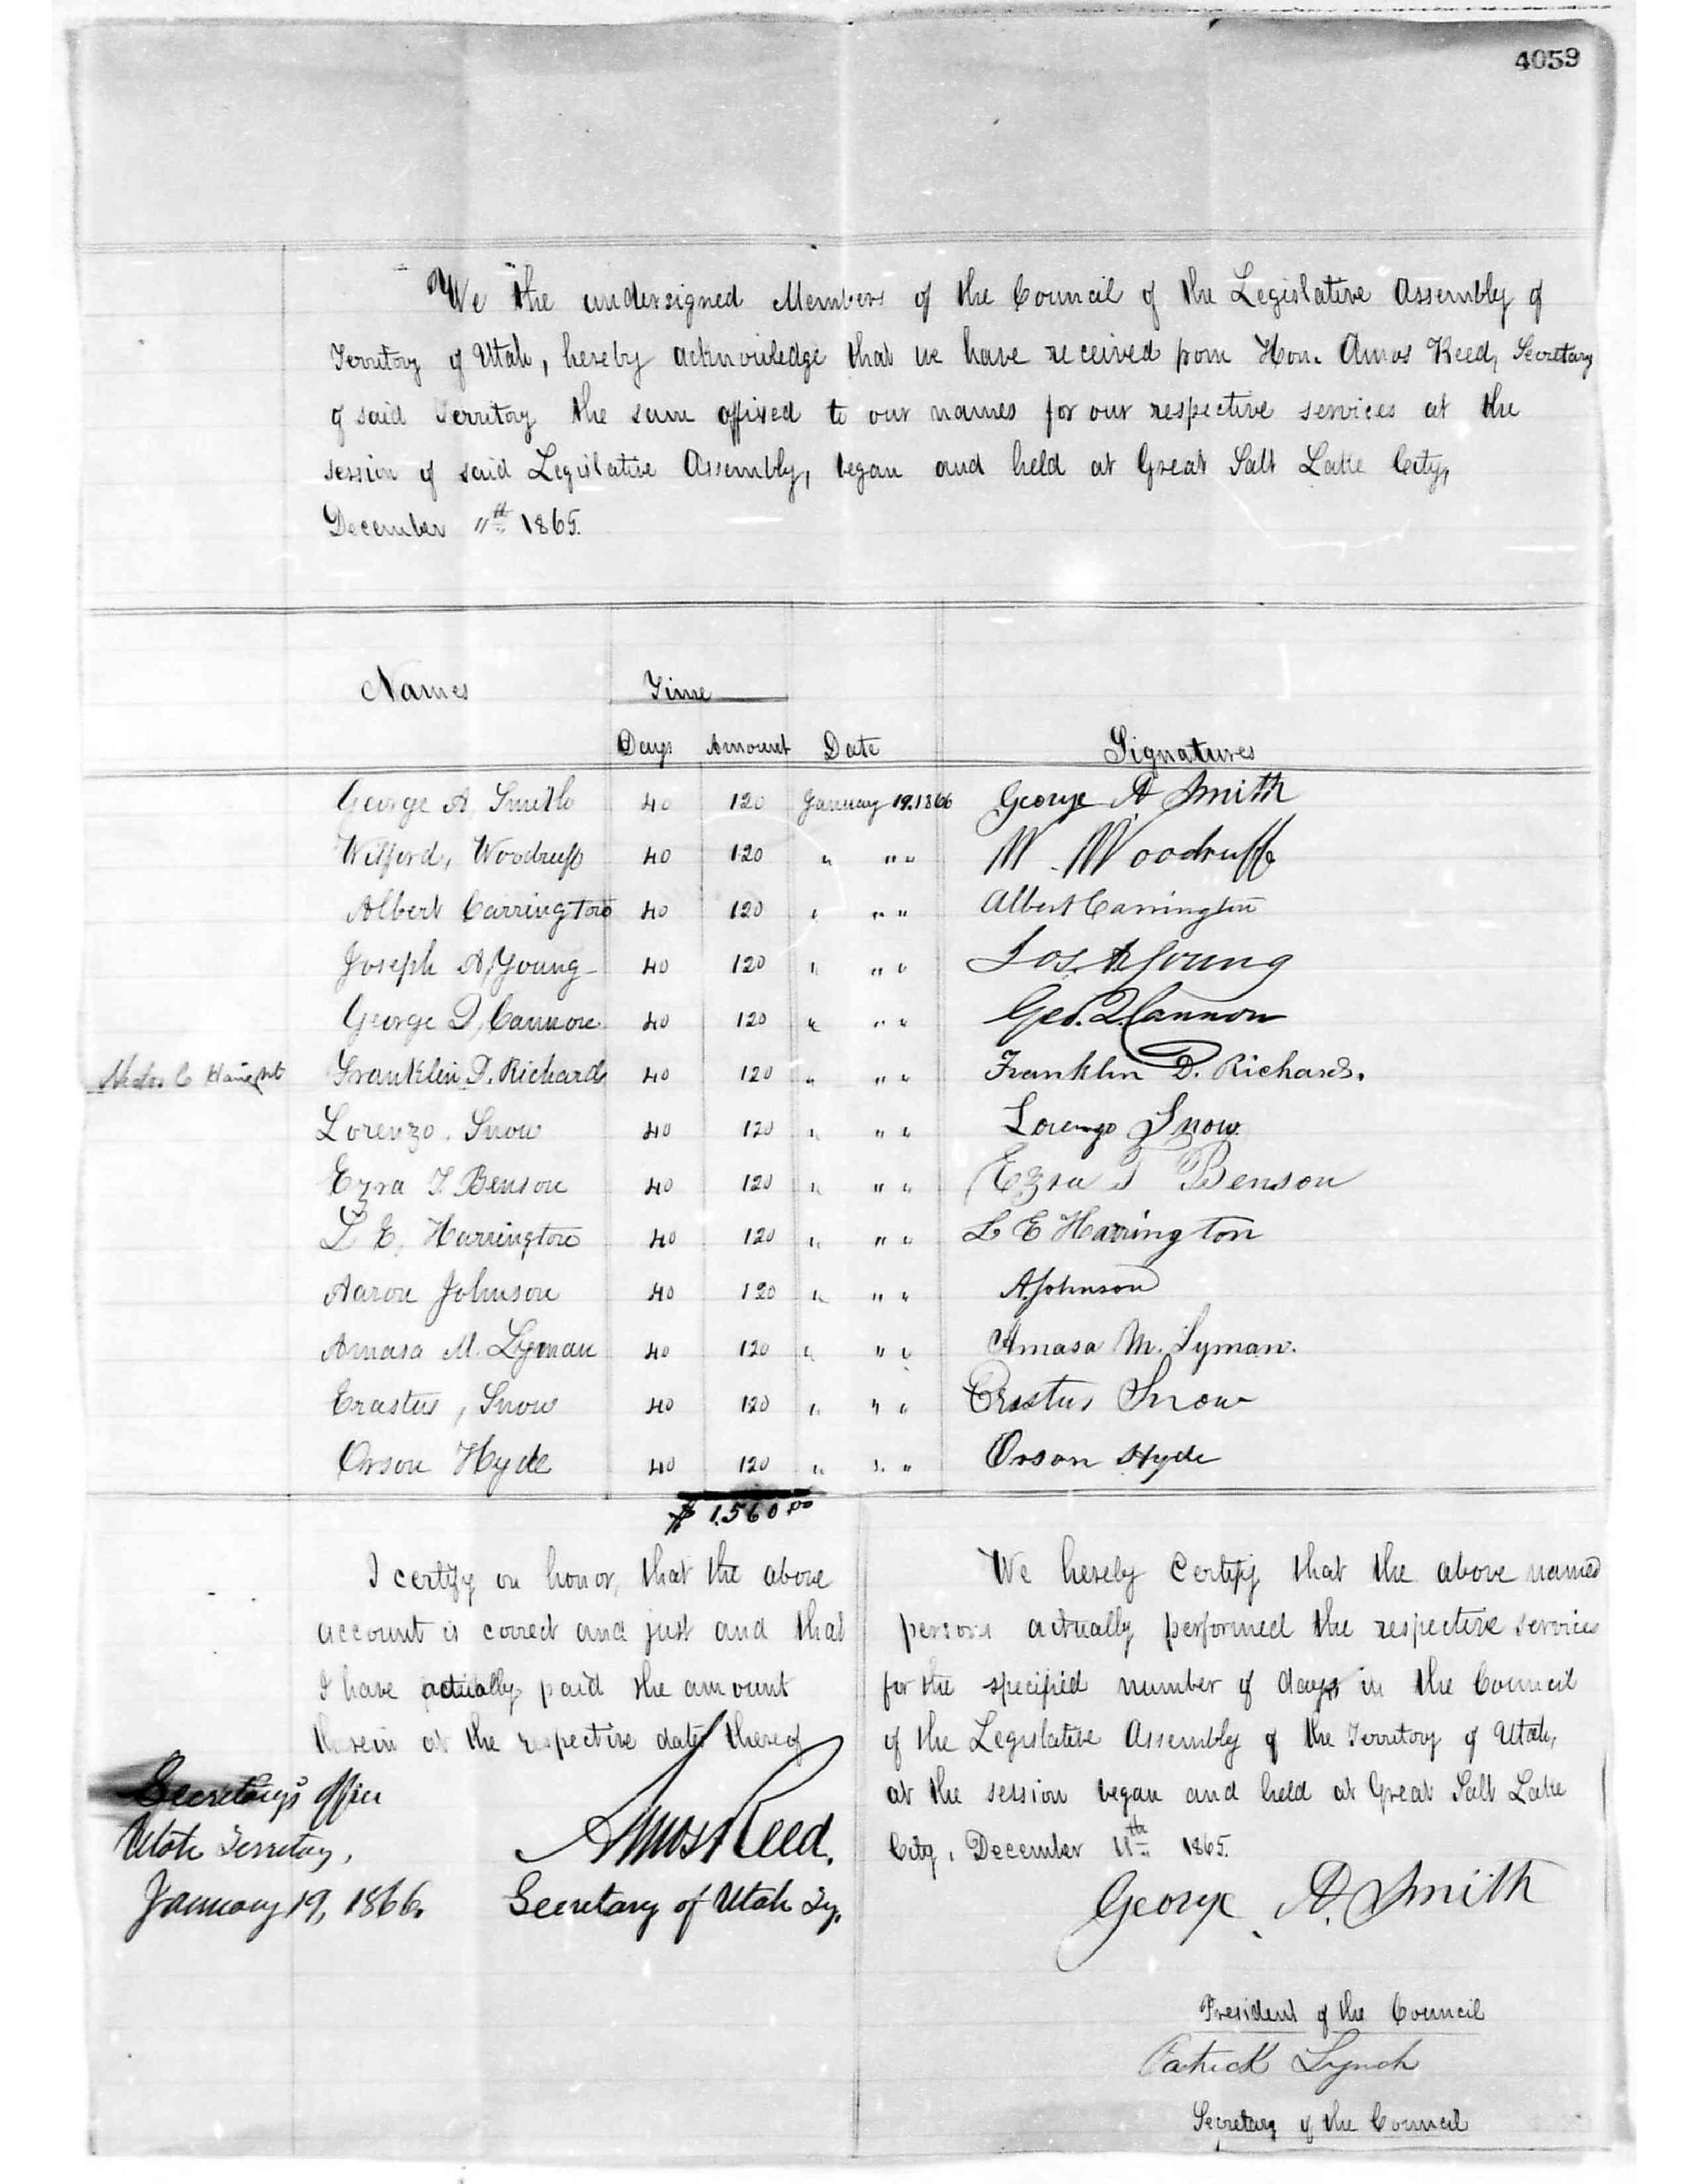 4059
We the undersigned Members of the Council of the Legislative Assembly of
Territory of Utah, hereby acknowledge that we have received from Hon. Amos Reed, Secretary
of said Territory the sum affixed to our names for our respective services at the
session of said Legislative Assembly, began and held at Great Salt Lake City,
December 11th 1865.
Names Time
Days Amount Date Signatures
George A. Smith 40 120 January 19. 1866 George A Smith
Wilford, Woodruff 40 120 " " " W. Woodruff
Albert Carrington 40 120 " " " Albert Carrington
Joseph A, Young 40 120 " " " Jos. A Young
George Q, Cannon 40 120 " " " Geo. Q. Cannon
Haight Franklin D. Richards 40 120 " " " Franklin D. Richards.
Lorenzo. Snow 40 120 " " " Lorenzo Snow.
Ezra T Benson 40 120 " " " Ezra T Benson
L E, Harrington 40 120 " " " L E Harrington
Aaron Johnson 40 120 " " " A. Johnson
Amasa M. Lyman 40 120 " " " Amasa M. Lyman.
Erastus, Snow 40 120 " " " Erastus Snow
Orson Hyde 40 120 " " " Orson Hyde
$ 1.560.00
I certify on honor, that the above
account is correct and just and that
I have actually paid the amount
therein at the respective dates thereof
Secretary's Office
Utah Territory,
January 19, 1866.
Amos Reed.
Secretary of Utah Ty.
We hereby Certify that the above named
persons actually performed the respective services
for the specified number of days in the Council
of the Legislative Assembly of the Territory of Utah,
at the session began and held at Great Salt Lake
City, December 11th 1865.
George A. Smith
President of the Council
Patrick Lynch
Secretary of the Council